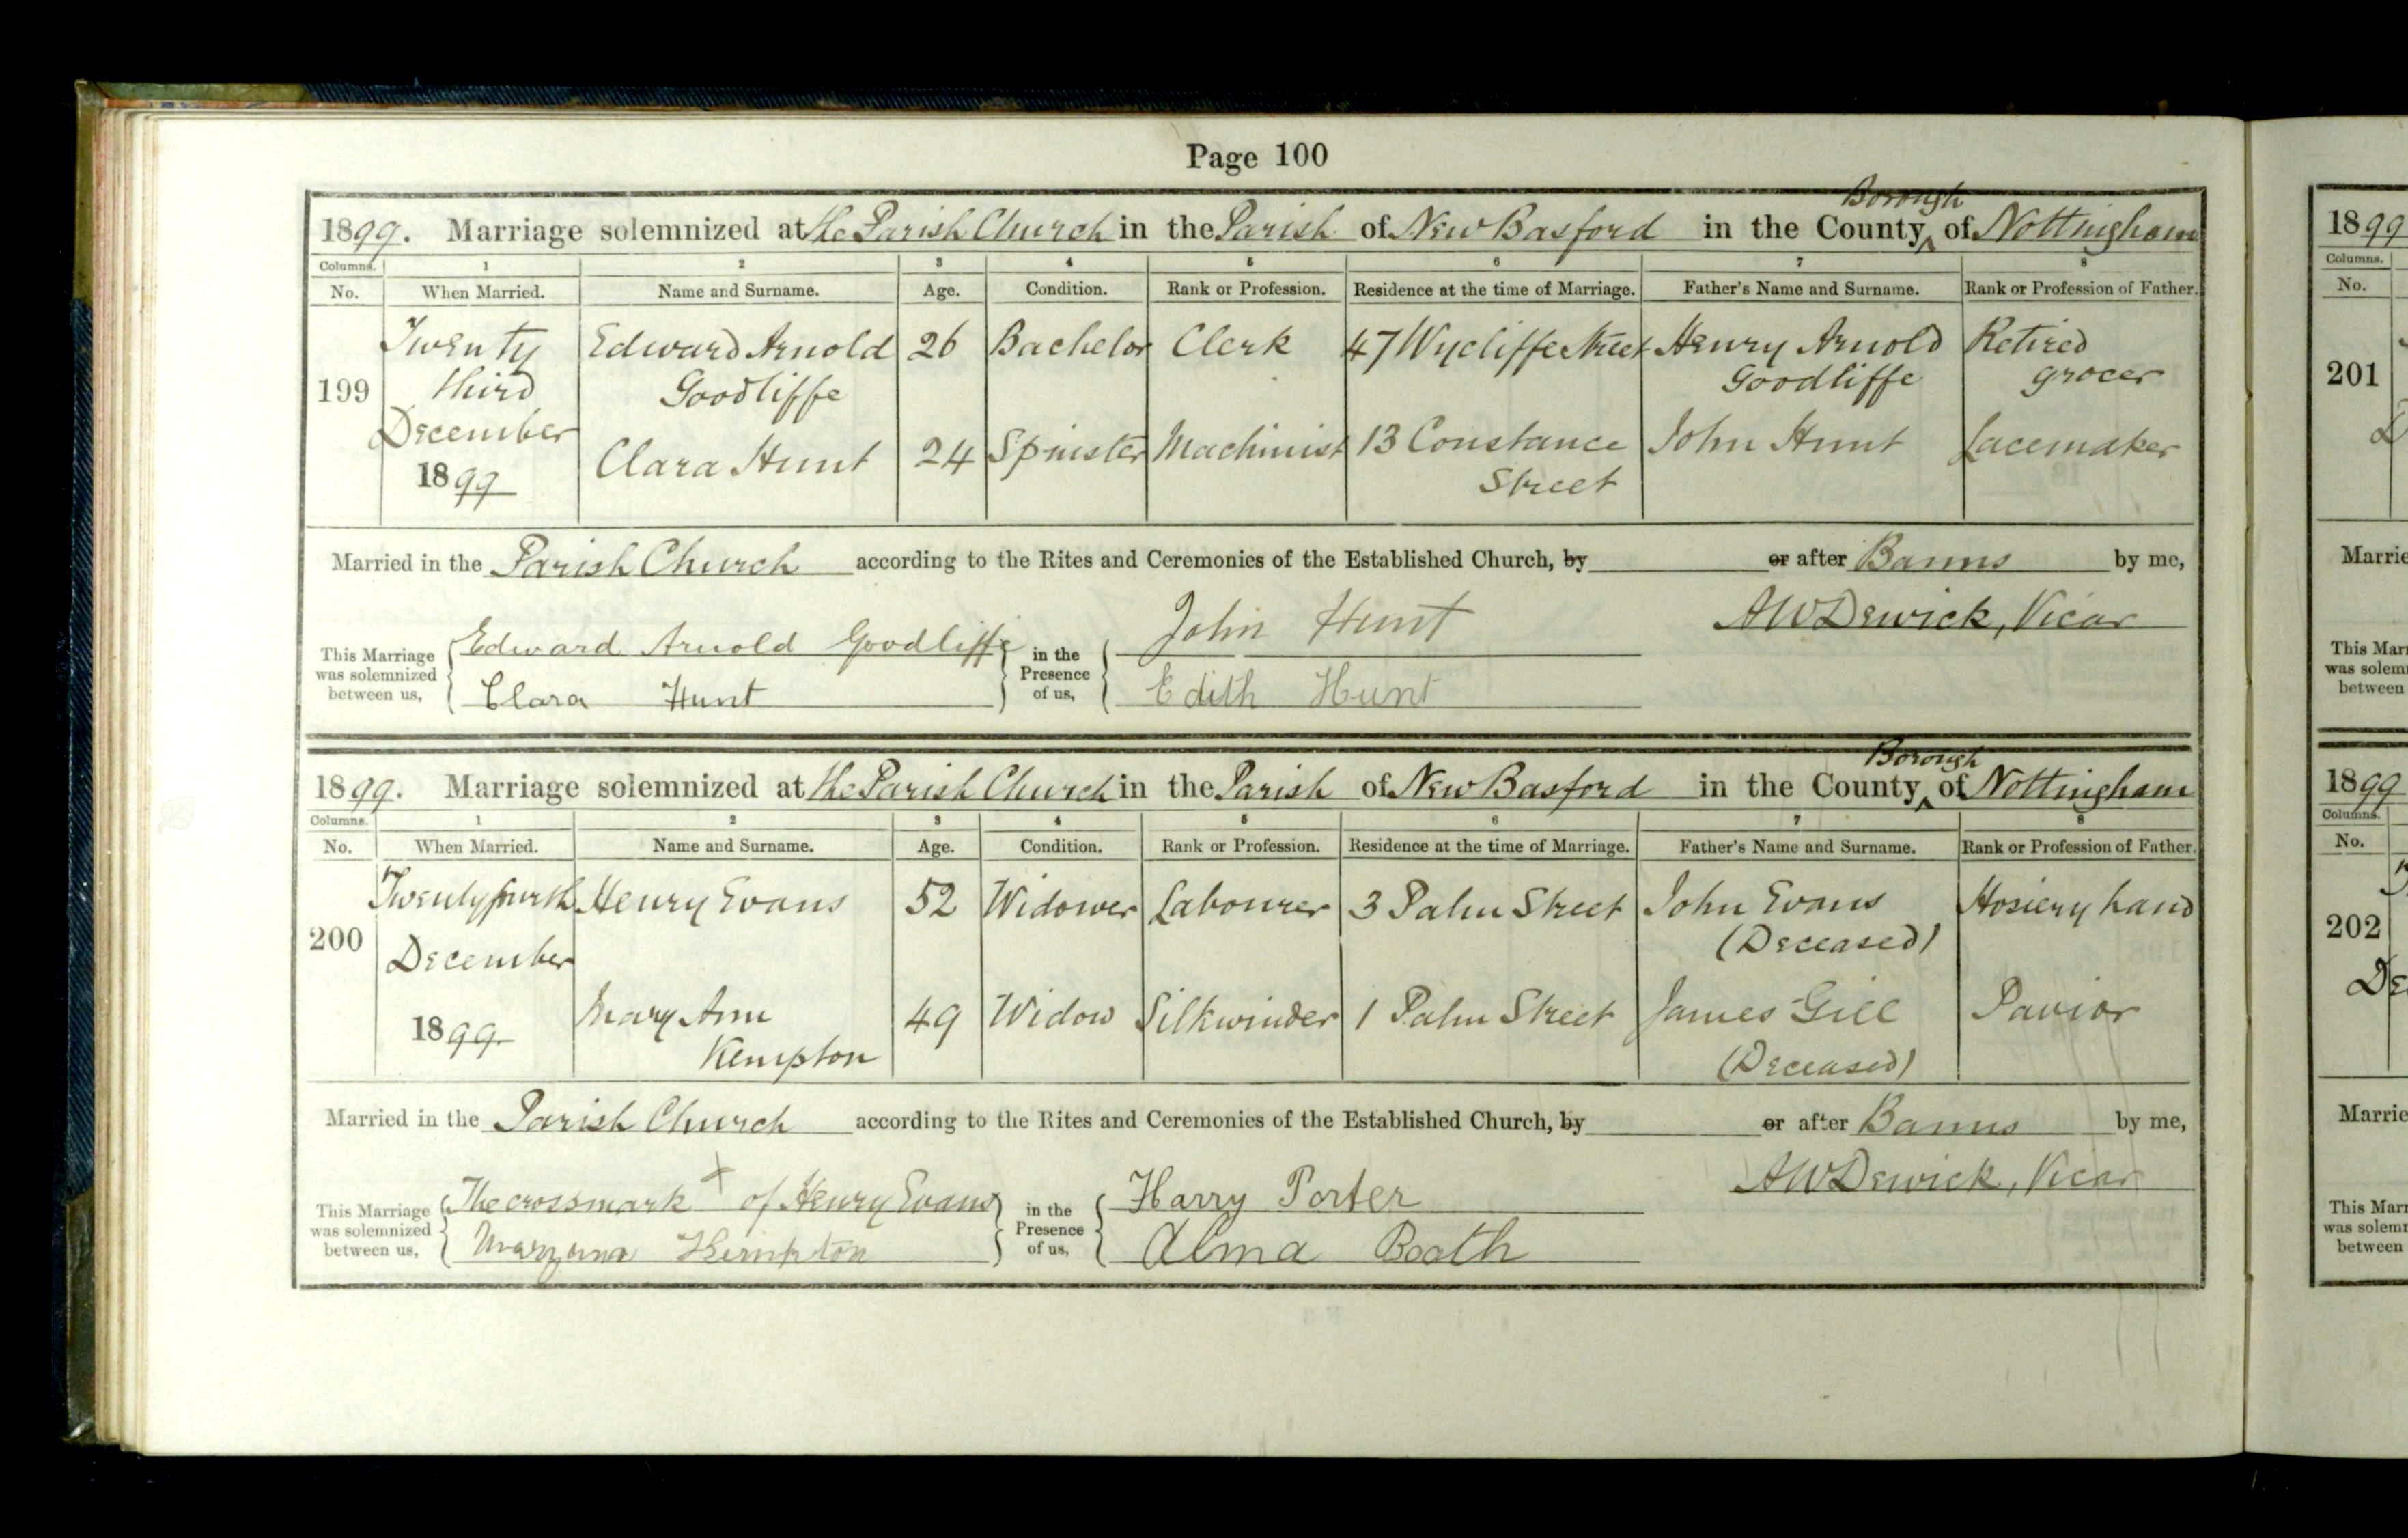 Page 100
Borough
1899. Marriage solemnized at the Parish Church in the Parish of New Basford in the County ^ of Nottingham
Columns. 1 2 3 4 5 6 7 8
No. When Married. Name and Surname. Age. Condition. Rank or Profession. Residence at the time of Marriage. Father's Name and Surname. Rank or Profession of Father.
Twenty Edward Arnold 26 Bachelor Clerk 47 Wycliffe Street Henry Arnold Retired
199 third Goodliffe Goodliffe grocer
December Clara Hunt 24 Spinster Machinist 13 Constance John Hunt Lacemaker
1899 Street
Married in the Parish Church according to the Rites and Ceremonies of the Established Church, by or after Banns by me,
This Marriage was solemnized between us, Edward Arnold Goodliffe in the Presence of us, John Hunt AW Dewick, Vicar
Clara Hunt Edith Hunt
Borough
1899. Marriage solemnized at the Parish Church in the Parish of New Basford in the County ^ of Nottingham
Columns. 1 2 3 4 5 6 7 8
No. When Married. Name and Surname. Age. Condition. Rank or Profession. Residence at the time of Marriage. Father's Name and Surname. Rank or Profession of Father.
Twenty fourth Henry Evans 52 Widower Labourer 3 Palm Street John Evans Hosiery hand
200 December (Deceased)
1899. Mary Ann 49 Widow Silkwinder 1 Palm Street James Gill Pavior
Kempton (Deceased)
Married in the Parish Church according to the Rites and Ceremonies of the Established Church, by or after Banns by me,
This Marriage was solemnized between us, The crossmark X of Henry Evans in the Presence of us, Harry Porter AW Dewick, Vicar
Maryann Kempton Alma Booth
1899
Columns.
No.
201
Marrie
This Marr
was solemn
between
1899
Columns.
No.
202
De
Marrie
This Marr
was solemn
between